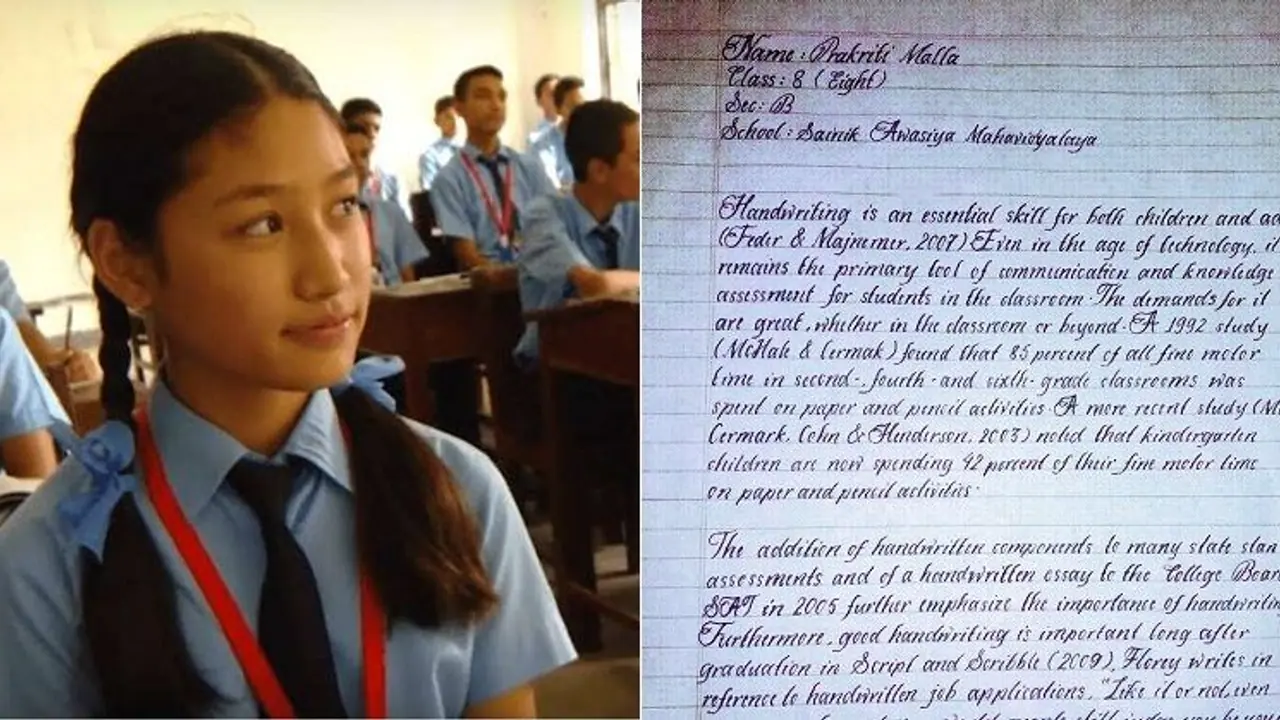 Name: Prakriti Malla
Class: 8 (Eight)
Sec: B
School: Sainik Awasiya Mahavidyalaya
Handwriting is an essential skill for both children and
(Feder & Majnemer, 2007) Even in the age of technology, it
remains the primary tool of communication and knowledge
assessment for students in the classroom. The demands for it
are great, whether in the classroom or beyond. A 1992 study
(McHale & Cermak) found that 85 percent of all fine motor
time in second-, fourth- and sixth- grade classrooms was
spent on paper and pencil activities. A more recent study (M
Cermark, Cohn & Henderson, 2003) noted that kindergarten
children are now spending 42 percent of their fine motor time
on paper and pencil activities.
The addition of handwritten components to many state stan
assessments and of a handwritten essay to the College Boar
SAT in 2005 further emphasize the importance of handwriti
Furthermore, good handwriting is important long after
graduation in Script and Scribble (2009), Florey writes in
reference to handwritten job applications, "Like it or not, even